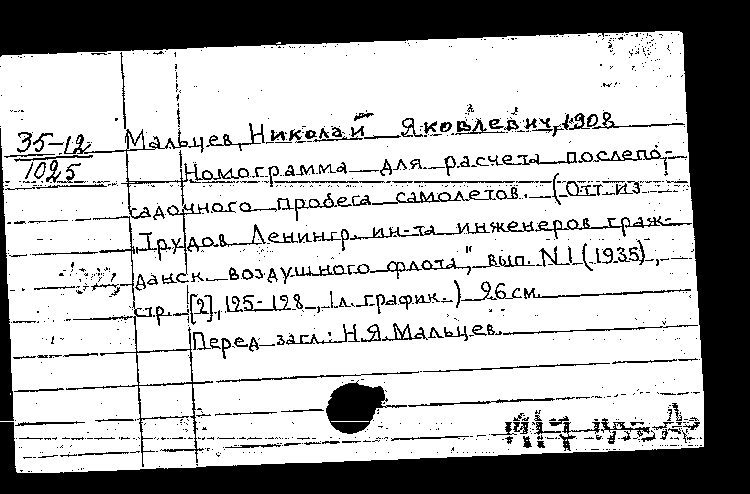 35-12
1025
Мальцев, Николай Яковлевич, 1908
Номограмма для расчета послепо-
садочного пробега самолетов. (Отт. из
„Трудов Ленингр. ин-та инженеров граж-
данск. воздушного флота“, вып. N1 (1935),
стр. [2], 125-128, 1 л. график.) 26 см.
Перед загл.: Н.Я. Мальцев.